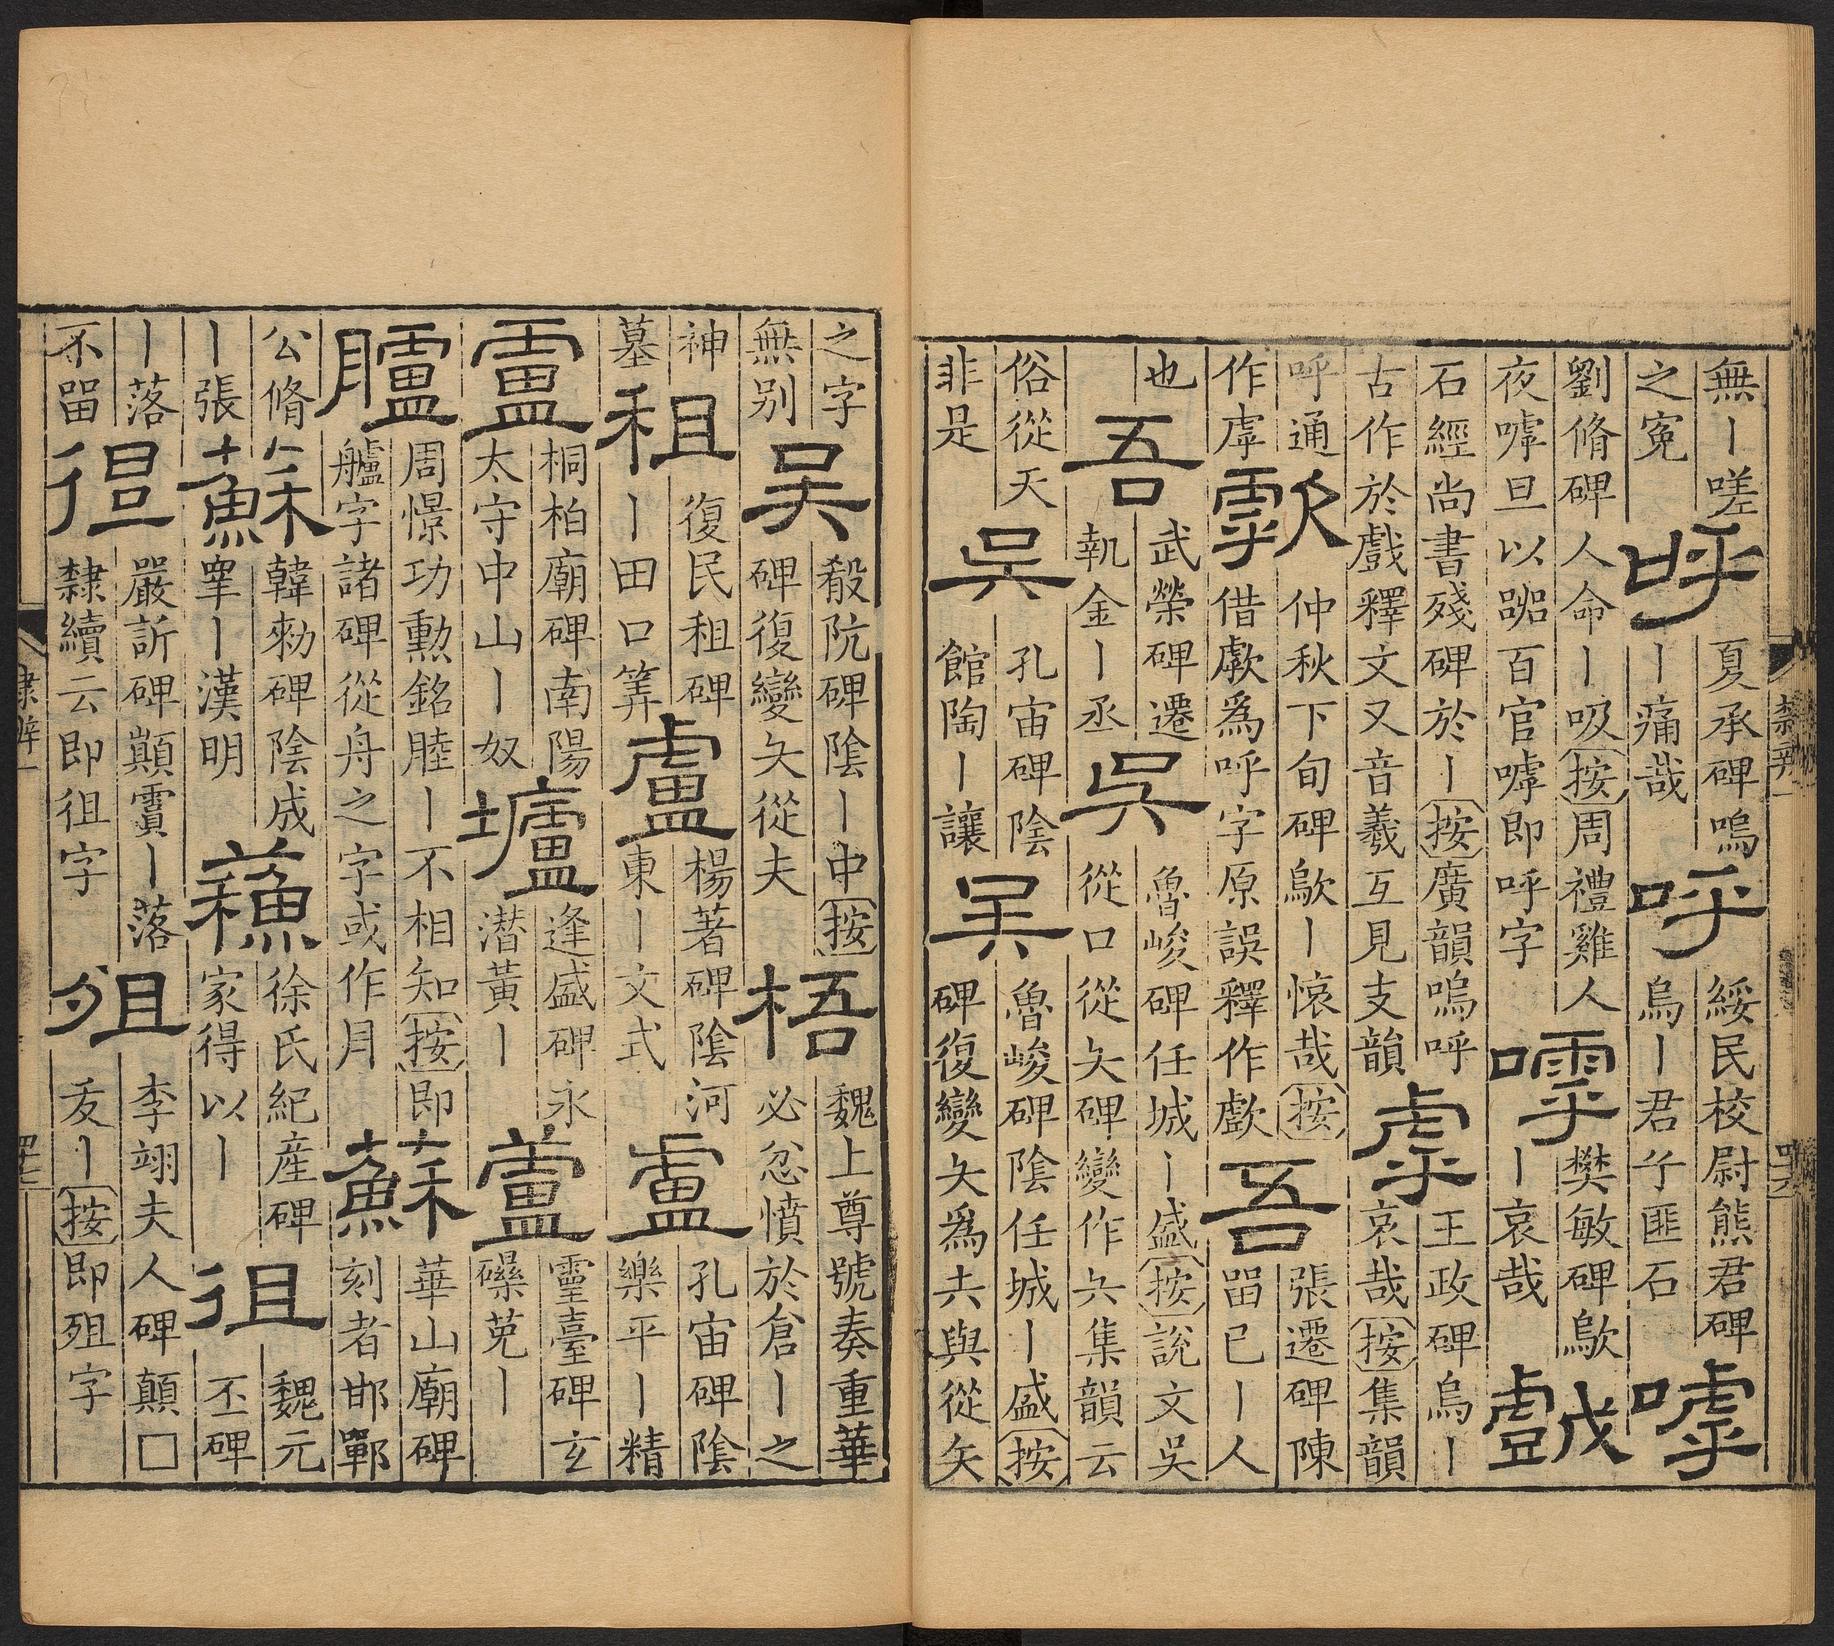 無丨嗟
之冤
呼
夏承碑嗚
丨痛哉
呼
綏民校尉熊君碑
烏丨君兮匪石
嘑
劉脩碑人命丨吸按周禮雞人
夜嘑旦以嘂百官嘑即呼字
嘑
樊敏碑歍
丨哀哉
戲
石經尚書殘碑於丨按廣韻嗚呼
古作於戲釋文又音羲互見支韻
虖
王政碑烏丨
哀哉按集韻
呼通
作虖
歑
仲秋下旬碑歍丨懷哉按
借歑爲呼字原誤釋作歔
吾
張遷碑陳
畱已丨人
也
吾
武榮碑遷
執金丨丞
吳
魯峻碑任城丨盛按說文吳
從口從夨碑變作六集韻云
俗從天
非是
吳
孔宙碑陰
館陶丨讓
吴
魯峻碑陰任城丨盛按
碑復變夨爲𠫓與從矢
隸辨一
之字
無别
吴
殽阬碑陰丨中按
碑復變夨從夫
梧
魏上尊號奏重華
必忿憤於倉丨之
神
墓
租
復民租碑
丨田口筭
盧
楊著碑陰河
東丨文式
盧
孔宙碑陰
樂平丨精
盧
桐柏廟碑南陽
太守中山丨奴
壚
逢盛碑永
潛黃丨
蘆
靈臺碑玄
礫菟丨
臚
周憬功勳銘睦丨不相知按即
艫字諸碑從舟之字或作月
蘇
華山廟碑
刻者邯鄲
公脩
丨張
蘇
韓勑碑陰成
睪丨漢明
蘓
徐氏紀産碑
家得以丨
徂
魏元
丕碑
丨落
不畱
徂
嚴訢碑顚霣丨落
隸續云即徂字
殂
李翊夫人碑顛□
丨按即殂字
隸辨一